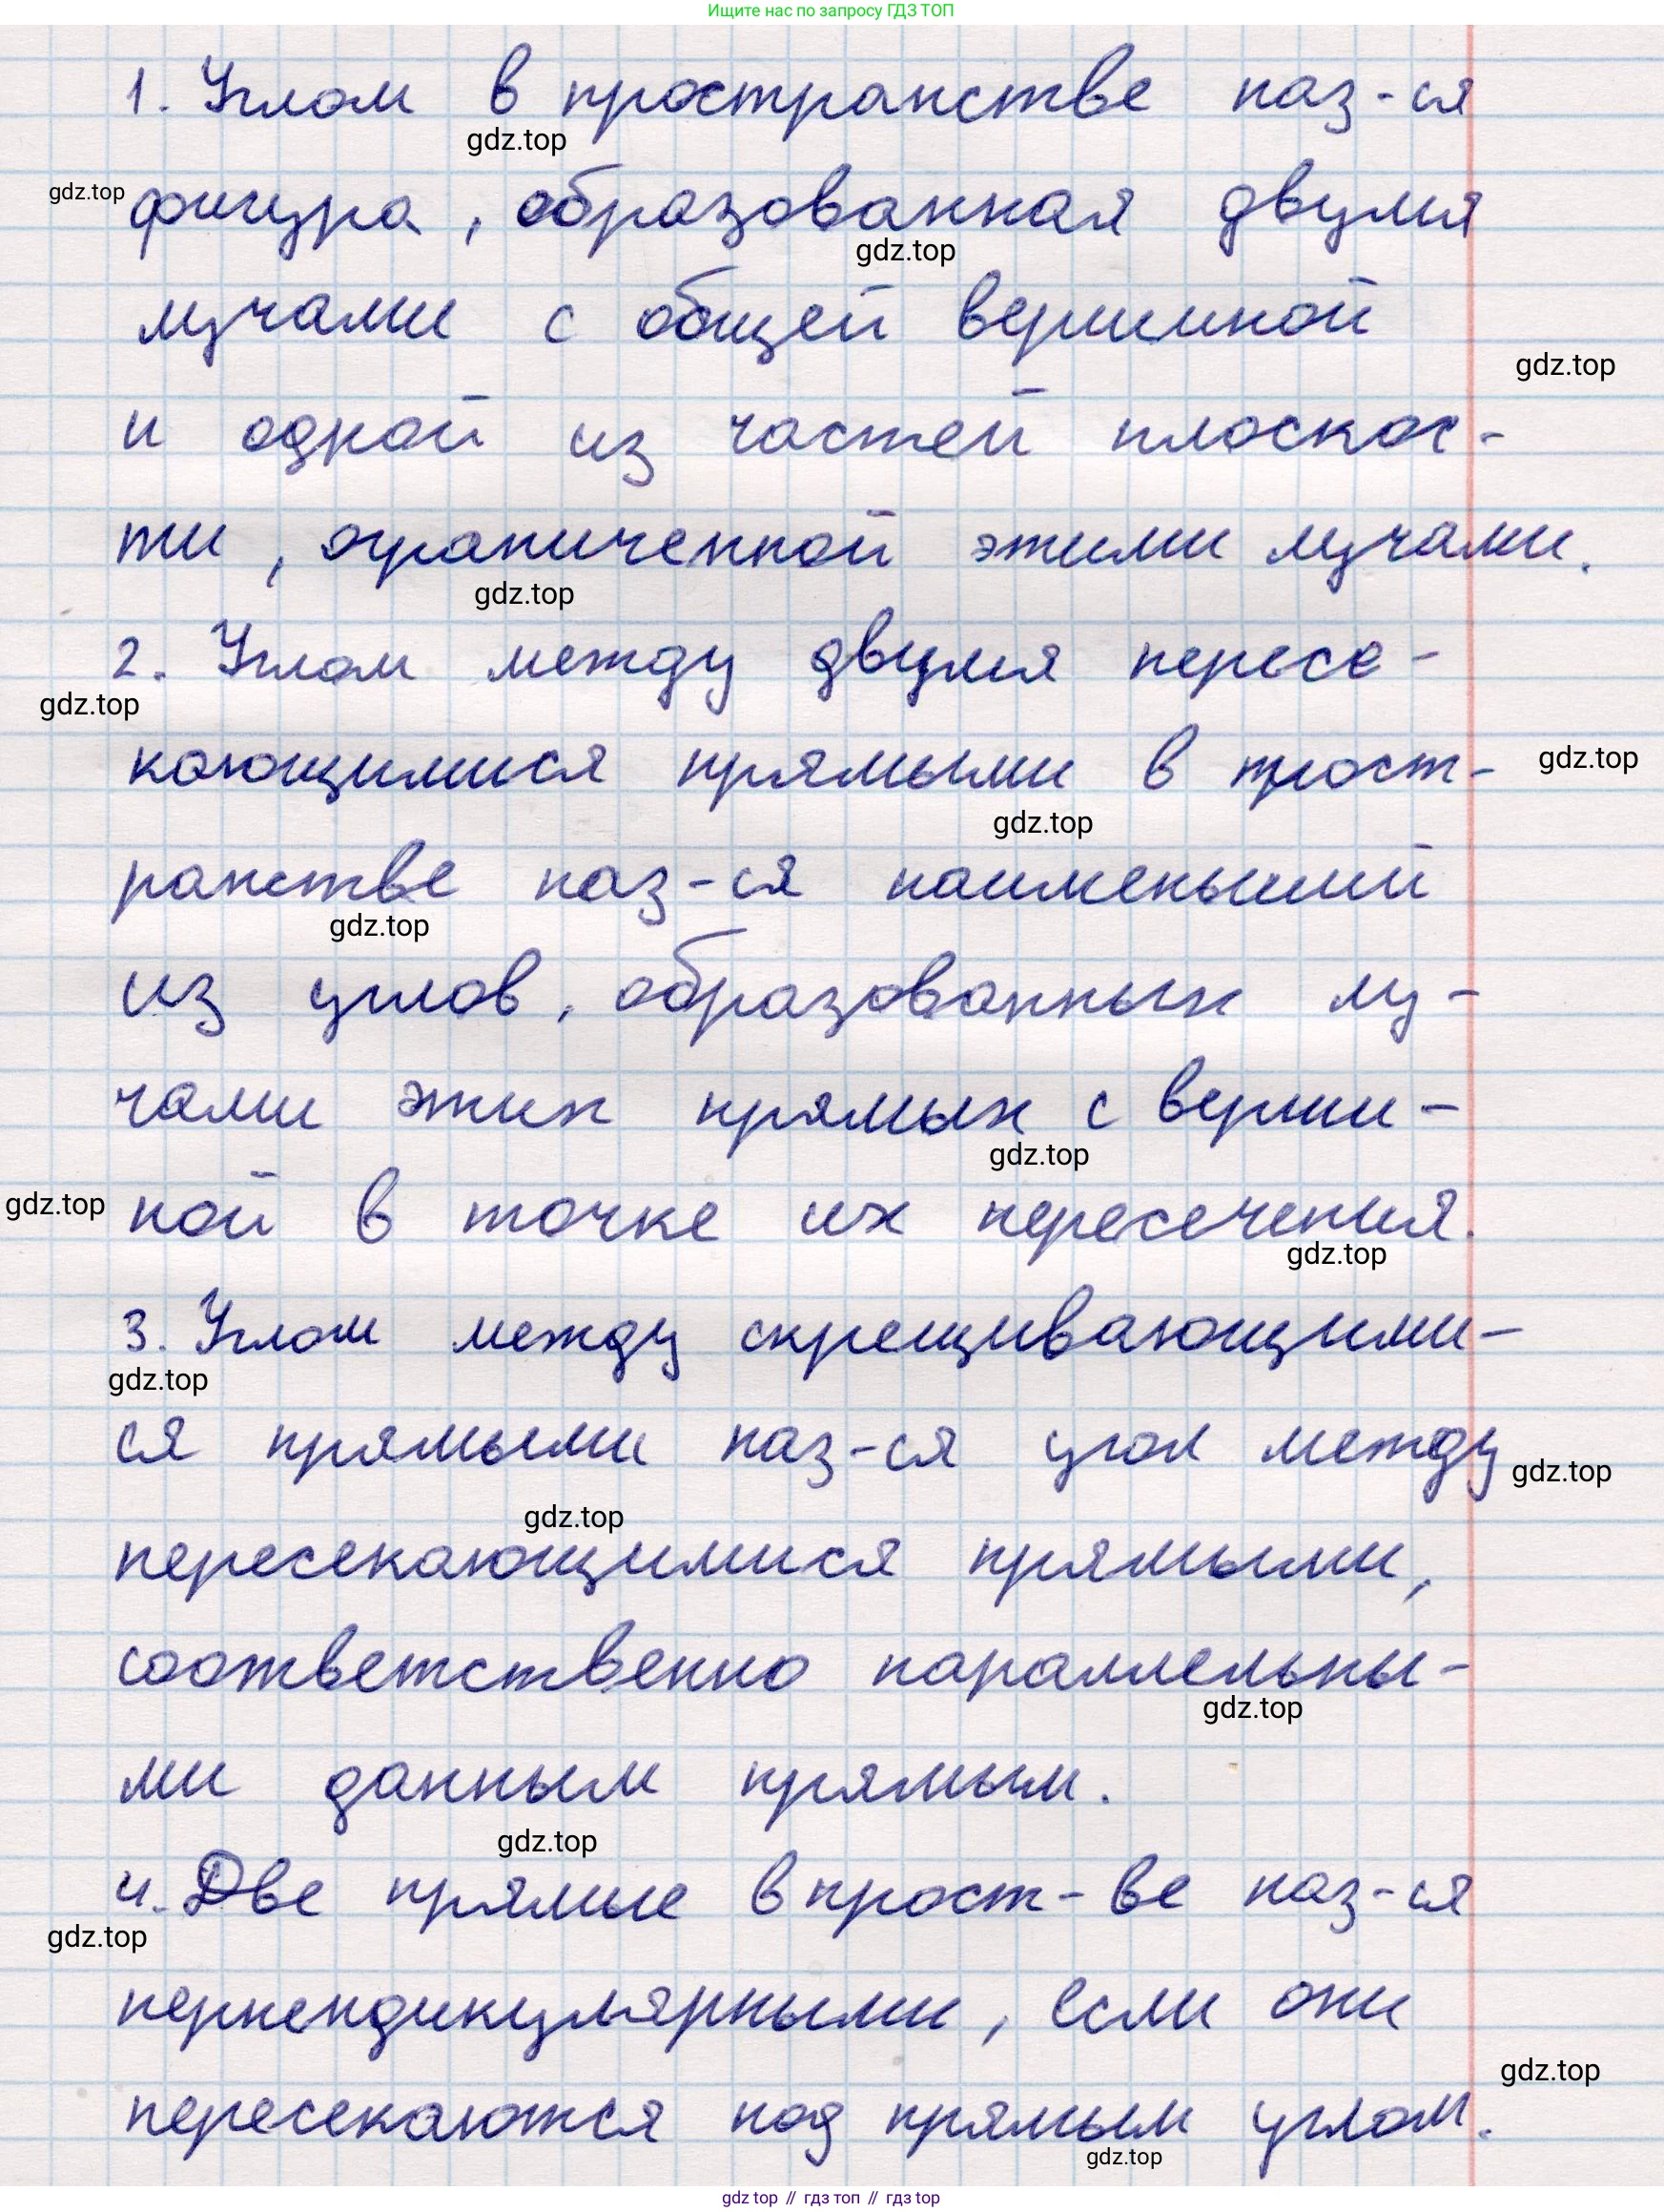 Ищите нас по запросу ГДЗ ТОП
1. Углом в пространстве наз-ся
gdz.top
gdz.top
фигура, образованная двумя
gdz.top
лучами с общей вершиной
gdz.top
и одной из частей плоскос-
ти, ограниченной этими лучами.
gdz.top
2. Углом между двумя пересе-
gdz.top
кающимися прямыми в прост-
gdz.top
gdz.top
ранстве наз-ся наименьший
gdz.top
из углов, образованных лу-
чами этих прямых с верши-
gdz.top
gdz.top
ной в точке их пересечения.
gdz.top
3. Углом между скрещивающими-
gdz.top
ся прямыми наз-ся угол между
gdz.top
gdz.top
пересекающимися прямыми,
соответственно параллельны-
gdz.top
ми данным прямым.
gdz.top
4. Две прямые в прост-ве наз-ся
gdz.top
перпендикулярными, если они
gdz.top
пересекаются под прямым углом.
gdz.top
gdz top // гдз топ // гдз top